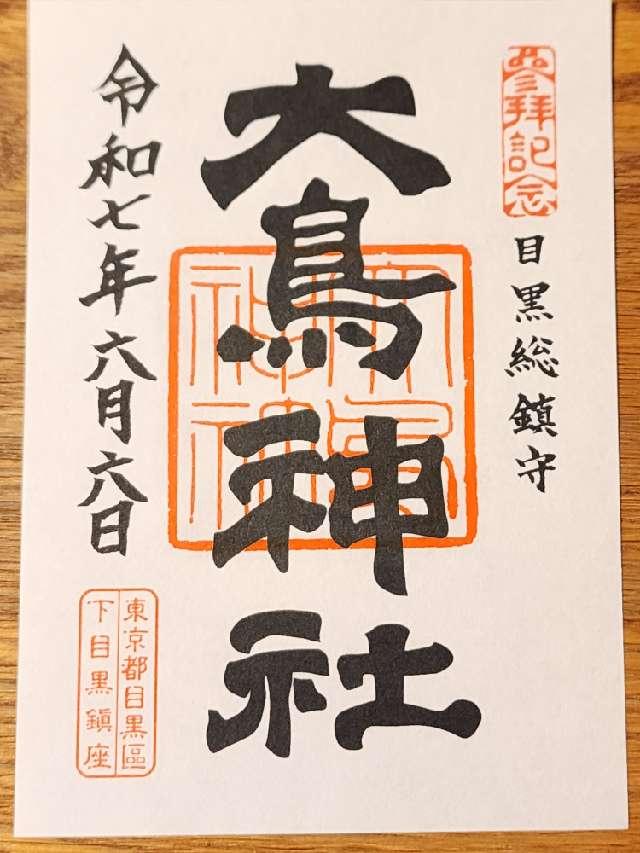 參拜記念
目黒総鎮守
大鳥神社
令和七年六月六日
東京都目黒區
下目黒鎭座